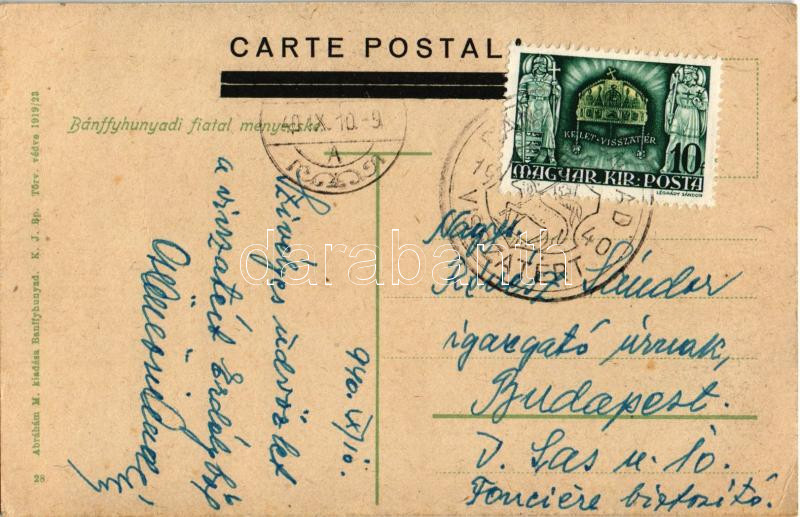 CARTE POSTAL
Bánffyhunyadi fiatal menyecske
40.IX.10.-9
A
KELET-VISSZATÉR
10f
MAGYAR KIR. POSTA
LÉGRÁDY SÁNDOR
VISSZATÉRT
1940
940. IX/10.
Szívélyes üdvözlet
a visszatért Erdélyből
Nagys.
Sándor
igazgató úrnak,
Budapest.
V. Sas u. 10.
Fonciére biztosító.
28 Abrahám M. kiadása Banffyhunyad. K. J. Bp. Törv. védve 1919/23
darabanth